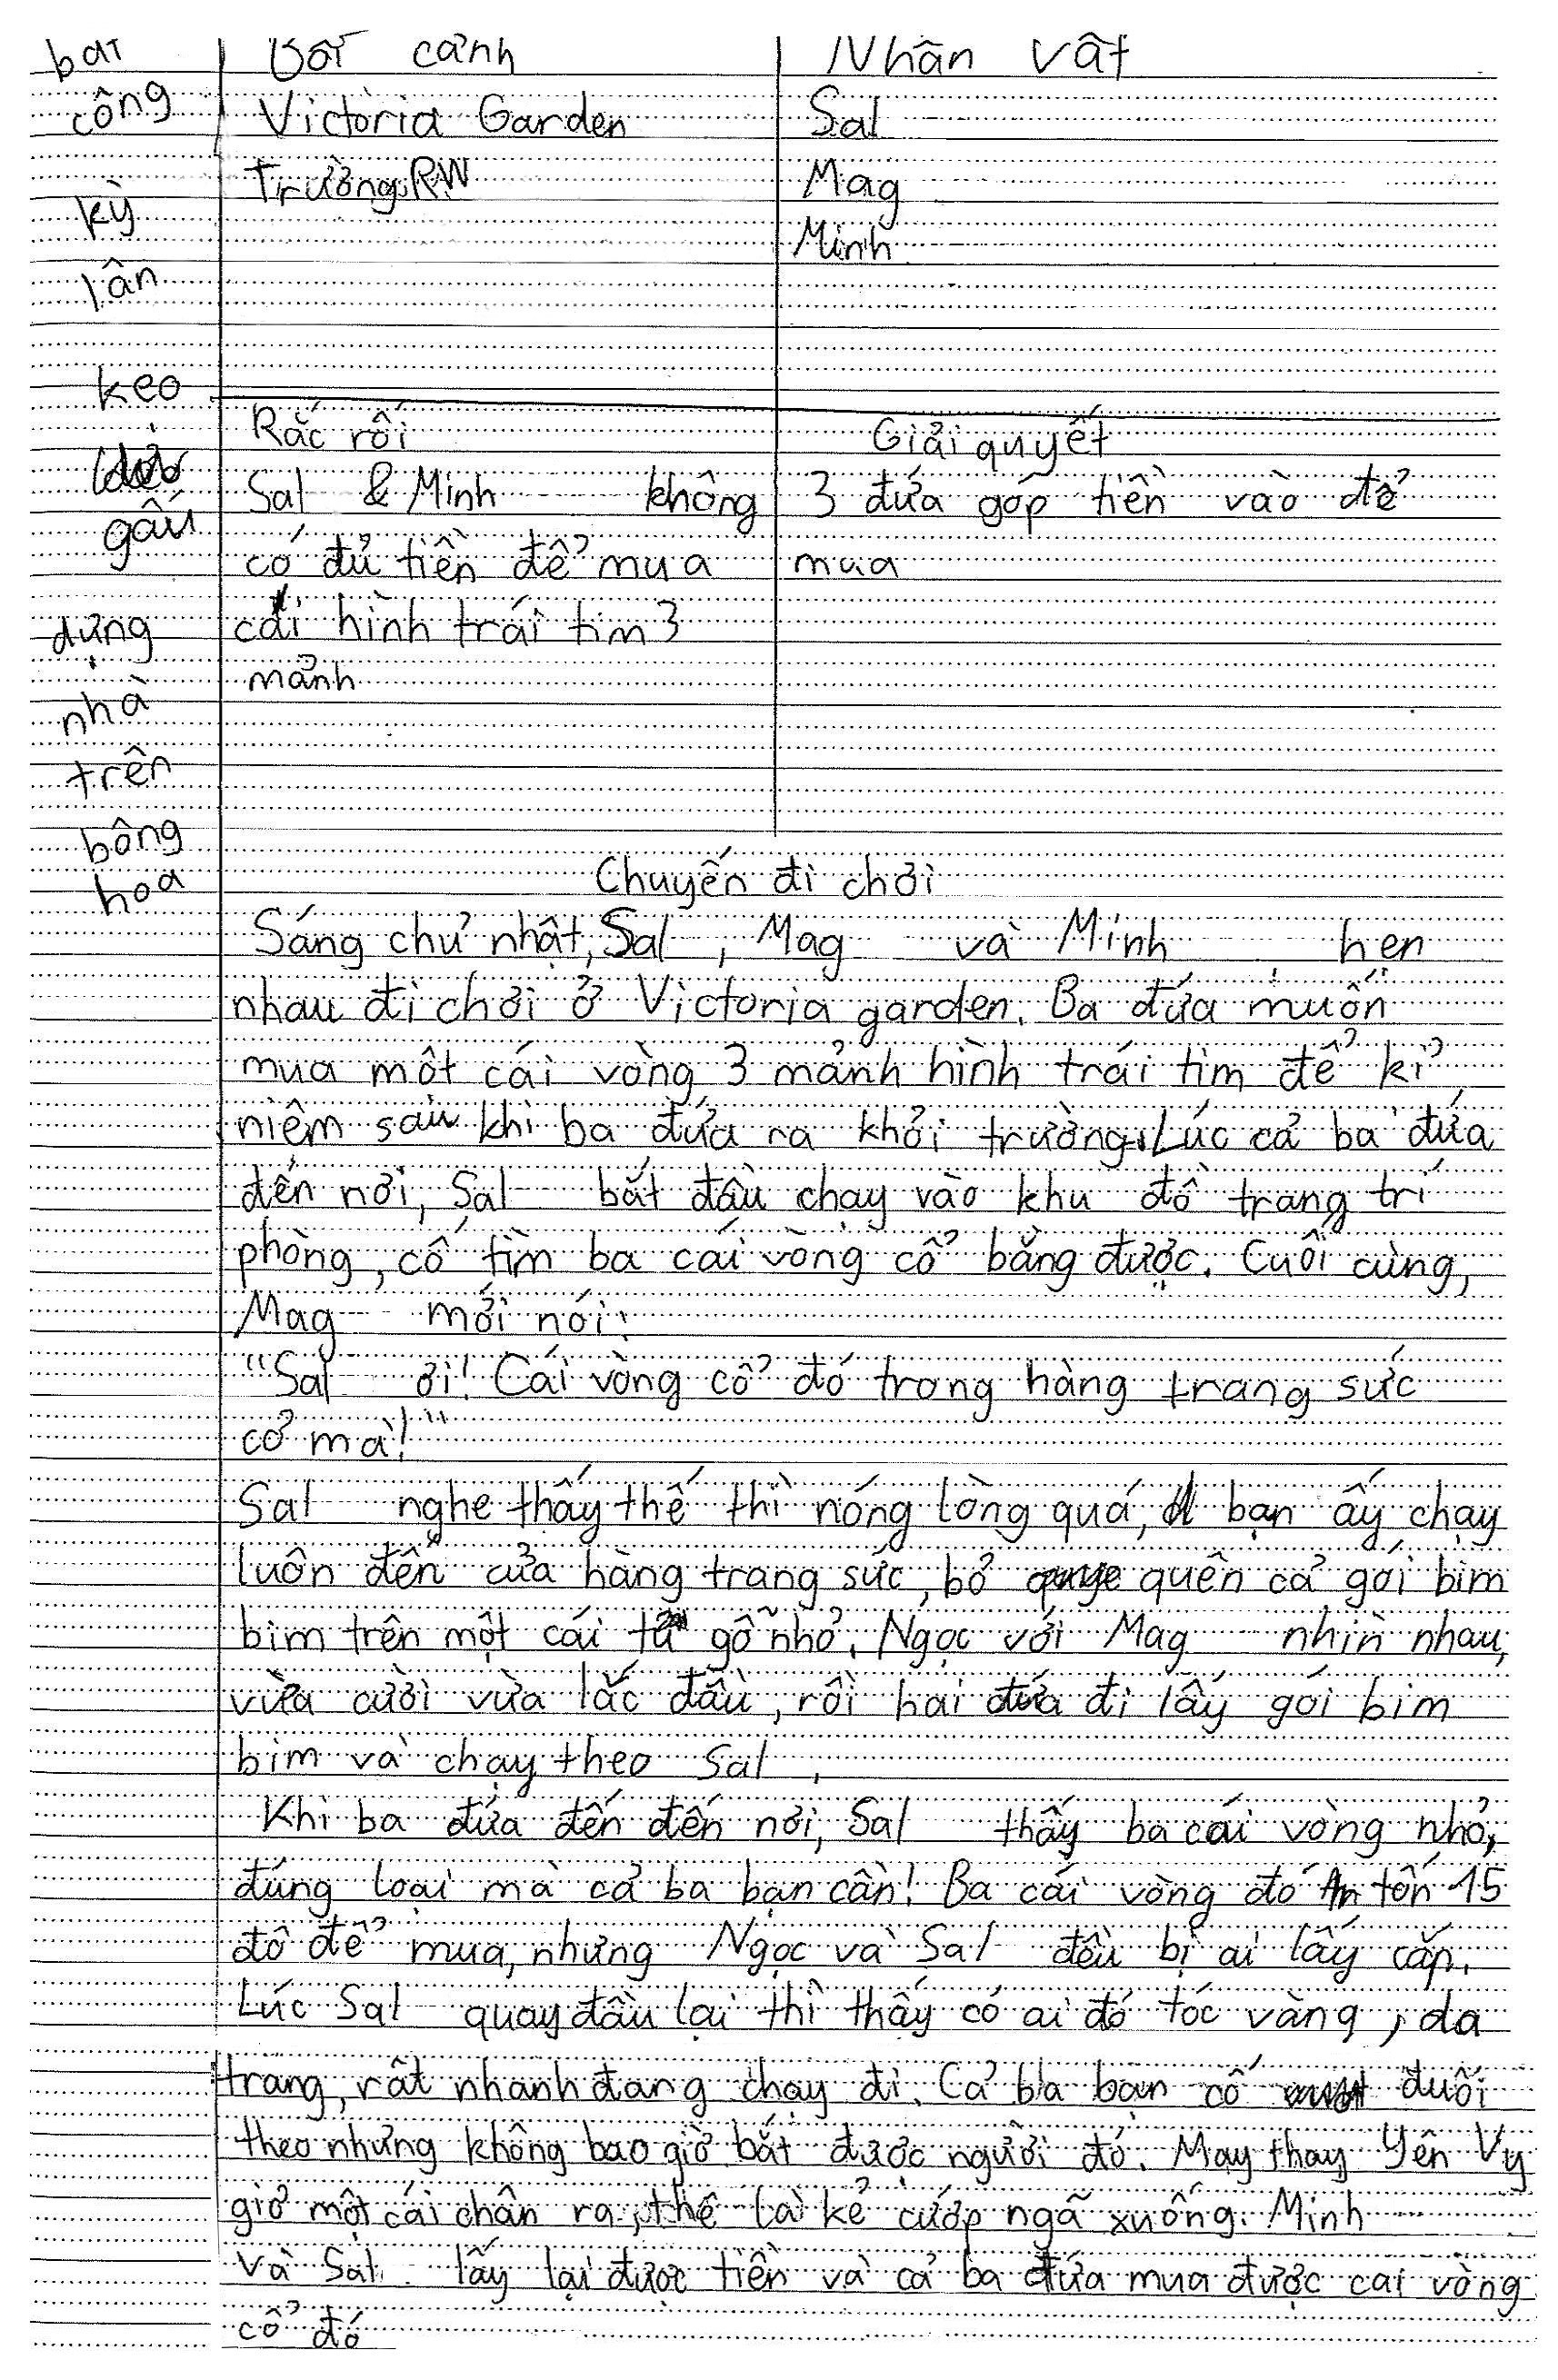 bài
công
kỳ
lân
kẹo
dẻo
gấu
dựng
nhà
trên
bông
hoa
Bối cảnh
Victoria Garden
Trường RW
Nhân vật
Sal
Mag
Minh
Rắc rối
Sal & Minh không
có đủ tiền để mua
cái hình trái tim 3
mảnh
Giải quyết
3 đứa góp tiền vào để
mua
Chuyến đi chơi
Sáng chủ nhật, Sal, Mag và Minh hẹn
nhau đi chơi ở Victoria garden. Ba đứa muốn
mua một cái vòng 3 mảnh hình trái tim để kỉ
niệm sau khi ba đứa ra khỏi trường. Lúc cả ba đứa
đến nơi, Sal bắt đầu chạy vào khu đồ trang trí
phòng, cố tìm ba cái vòng cổ bằng được. Cuối cùng,
Mag mới nói:
"Sal ơi! Cái vòng cổ đó trong hàng trang sức
cơ mà!"
Sal nghe thấy thế thì nóng lòng quá, bạn ấy chạy
luôn đến cửa hàng trang sức, bỏ quên cả gói bim
bim trên một cái tủ gỗ nhỏ. Ngọc với Mag nhìn nhau,
vừa cười vừa lắc đầu, rồi hai đứa đi lấy gói bim
bim và chạy theo Sal.
Khi ba đứa đến đến nơi, Sal thấy ba cái vòng nhỏ,
đúng loại mà cả ba bạn cần! Ba cái vòng đó tốn 15
đô để mua, nhưng Ngọc và Sal đều bị ai lấy cắp.
Lúc Sal quay đầu lại thì thấy có ai đó tóc vàng, da
trang, rất nhanh đang chạy đi. Cả ba bạn cố đuổi
theo nhưng không bao giờ bắt được người đó. May thay Yên Vy
giơ một cái chân ra, thế là kẻ cướp ngã xuống. Minh
và Sal lấy lại được tiền và cả ba đứa mua được cái vòng
cổ đó